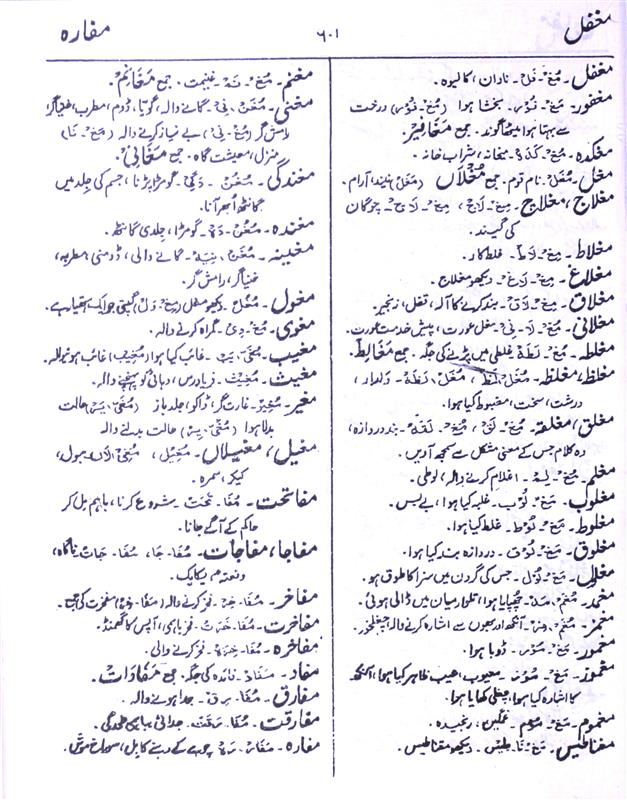 مغفل
۶۰۱
مفارہ
مغفل۔ مُغ۔ فَل۔ نادان، کالیوہ۔
مغفور۔ مَغ۔ فُور۔ بخشا ہوا (مُغ۔ فُور) درخت
سے بہتا ہوا میٹھا گوند۔ جمع مَغَافِیر۔
مغکدہ۔ مُغ۔ کَدَہ۔ میخانہ، شراب خانہ۔
مغل۔ مُغَل۔ نام قوم۔ جمع مُغلاں (مَغَل) نیند، آرام۔
مغلاج، مغلاچ۔ مِغ۔ لَاج، مِغ۔ لَاچ۔ چوگان
کی گیند۔
مغلاط۔ مِغ۔ لَاط۔ غلط کار۔
مغلاغ۔ مِغ۔ لَاغ۔ دیکھو مغلاج۔
مغلاق۔ مِغ۔ لَاق۔ بند کرنے کا آلہ، قفل، زنجیر۔
مغلانی۔ مُغ۔ لَا۔ نِی۔ مغل عورت، پیش خدمت عورت۔
مغلطہ۔ مَغ۔ لَطَہ۔ غلطی میں پڑنے کی جگہ۔ جمع مَغَالِط۔
مغلظ، مغلظہ۔ مُغَلَّظ، مُغَلَّظَہ۔ دلدار،
درشت، سخت، مضبوط کیا ہوا۔
مغلق، مغلقہ۔ مُغ۔ لَق، مُغ۔ لَقَہ۔ بند دروازہ،
وہ کلام جس کے معنی مشکل سے سمجھ آویں۔
مغلم۔ مُغ۔ لِم۔ اغلام کرنے والا، لوطی۔
مغلوب۔ مَغ۔ لُوب۔ غلبہ کیا ہوا، بے بس۔
مغلوط۔ مَغ۔ لُوط۔ غلط کیا ہوا۔
مغلوق۔ مَغ۔ لُوق۔ دروازہ بند کیا ہوا۔
مغلول۔ مَغ۔ لُول۔ جس کی گردن میں سزا کا طوق ہو۔
مغمد۔ مُغ۔ مَد۔ چھپایا ہوا، تلوار میان میں ڈالی ہوئی۔
مغمز۔ آنکھ اور بھوں سے اشارہ کرنے والا، چغلخور۔
مغمور۔ مَغ۔ مُور۔ ڈوبا ہوا۔
مغموز۔ مَغ۔ مُوز۔ معیوب، عیب ظاہر کیا ہوا، آنکھ
کا اشارہ کیا ہوا، چغلی کھایا ہوا۔
مغموم۔ مَغ۔ مُوم۔ غمگین، رنجیدہ۔
مغناطیس۔ مَغ۔ نَا۔ طِیس۔ دیکھو مقناطیس۔
مغنم۔ مَغ۔ نَم۔ غنیمت۔ جمع مَغَانِم۔
مغنی۔ مُغَن۔ نِی۔ گانے والہ، گویا، ڈوم، مطرب، خنیاگر،
رامش گر (مُغ۔ نِی) بے نیاز کرنے والہ (مَغ۔ نَا)
منزل، معیشت گاہ۔ جمع مَغَانِی۔
مغندگی۔ مُغَن۔ دَگِی۔ گومڑا پڑنا، جسم کی جلد میں
گانٹھ ابھر آنا۔
مغندہ۔ مُغَن۔ دَہ۔ گومڑا، جلدی گانٹھ۔
مغنیہ۔ مُغَن۔ نِیَہ۔ گانے والی، ڈومنی، مطربہ،
خنیاگر، رامش گر۔
مغول۔ مُغُل۔ دیکھو مغل (مِغ۔ وَل) گپتی جو ایک ہتھیار ہے۔
مغوی۔ مُغ۔ وِی۔ گمراہ کرنے والہ۔
مغیب۔ غائب کیا ہوا (مُغِیب) غائب ہونیوالہ۔
مغیث۔ مُغِیث۔ فریادرس، دہائی کو پہنچنے والہ۔
مغیر۔ مُغِیر۔ غارت گر، ڈاکو، جلد باز (مُغَی۔ یَر) حالت
بدلا ہوا (مُغَی۔ یِر) حالت بدلنے والہ
مغیل، مغیلاں۔ مُغِیل، مُغِیلاں، ببول،
کیکر، سمرہ۔
مفاتحت۔ مُفَا۔ تَحَت۔ شروع کرنا، باہم مل کر
حاکم کے آگے جانا۔
مفاجا، مفاجات۔ مُفَا۔ جَا، مُفَا۔ جَات۔ ناگاہ،
دفعتہً، یکایک۔
مفاخر۔ مُفَا۔ خِر۔ فخر کرنے والہ (مَفَا۔ خِر) مفخرت کی جمع۔
مفاخرت۔ مُفَا۔ خَرَت۔ فخر باہمی، آپس کا گھمنڈ۔
مفاخرہ۔ مُفَا۔ خِرَہ۔ فخر کرنے والی۔
مفاد۔ مَفَاد۔ فائدہ کی جگہ۔ جمع مَفَادَات۔
مفارق۔ مُفَا۔ رِق۔ جدا ہونے والہ۔
مفارقت۔ مُفَا۔ رَقَت۔ جدائی، باہمی علیحدگی۔
مفارہ۔ مَفَا۔ رَہ۔ چوہے کے رہنے کا بل، سوراخ موش۔